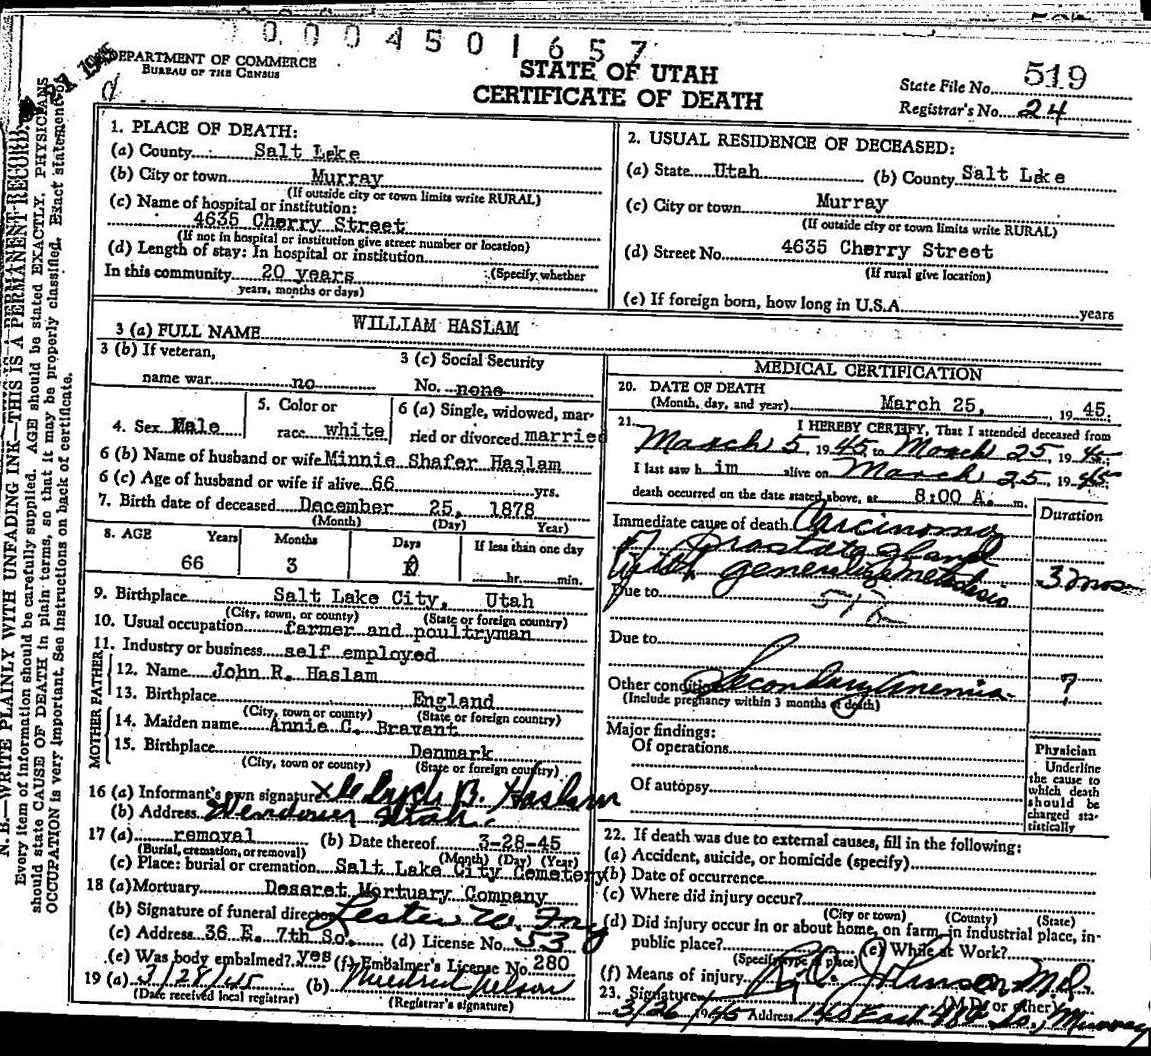 0004501657
DEPARTMENT OF COMMERCE
BUREAU OF THE CENSUS
STATE OF UTAH
CERTIFICATE OF DEATH
State File No. 519
Registrar's No. 24
N. B.—WRITE PLAINLY WITH UNFADING INK—THIS IS A PERMANENT RECORD.
Every item of information should be carefully supplied. AGE should be stated EXACTLY. PHYSICIANS
should state CAUSE OF DEATH in plain terms, so that it may be properly classified. Exact statement of
OCCUPATION is very important. See instructions on back of certificate.
1. PLACE OF DEATH:
(a) County Salt Lake
(b) City or town Murray
(If outside city or town limits write RURAL)
(c) Name of hospital or institution:
4635 Cherry Street
(If not in hospital or institution give street number or location)
(d) Length of stay: In hospital or institution
In this community 20 years (Specify whether
years, months or days)
2. USUAL RESIDENCE OF DECEASED:
(a) State Utah (b) County Salt Lake
(c) City or town Murray
(If outside city or town limits write RURAL)
(d) Street No. 4635 Cherry Street
(If rural give location)
(e) If foreign born, how long in U.S.A. years
3 (a) FULL NAME WILLIAM HASLAM
3 (b) If veteran,
name war no
3 (c) Social Security
No. none
4. Sex Male
5. Color or
race white
6 (a) Single, widowed, mar-
ried or divorced married
6 (b) Name of husband or wife Minnie Shafer Haslam
6 (c) Age of husband or wife if alive 66 yrs.
7. Birth date of deceased December 25, 1878
(Month) (Day) Year)
8. AGE Years Months Days If less than one day
66 3 0 hr. min.
9. Birthplace Salt Lake City, Utah
(City, town, or county) (State or foreign country)
10. Usual occupation farmer and poultryman
11. Industry or business self employed
FATHER
12. Name John R. Haslam
13. Birthplace England
(City, town or county) (State or foreign country)
MOTHER
14. Maiden name Annie C. Bravant
15. Birthplace Denmark
(City, town or county) (State or foreign country)
16 (a) Informant's own signature B. Haslam
(b) Address Wendover Utah.
17 (a) removal (b) Date thereof 3-28-45
(Burial, cremation, or removal) (Month) (Day) (Year)
(c) Place: burial or cremation Salt Lake City Cemetery
18 (a) Mortuary Deseret Mortuary Company
(b) Signature of funeral director Lester W.
(c) Address 36 E. 7th So. (d) License No. 53
(e) Was body embalmed? yes (f) Embalmer's License No. 280
19 (a) 3/28/45 (b) Mildred Nelson
(Date received local registrar) (Registrar's signature)
MEDICAL CERTIFICATION
20. DATE OF DEATH
(Month, day, and year) March 25, 1945.
21. I HEREBY CERTIFY, That I attended deceased from
March 5, 1945 to March 25, 1945
I last saw h im alive on March 25, 1945
death occurred on the date stated above, at 8:00 A. m.
Duration
Immediate cause of death Carcinoma
of prostate gland
with general metastasis 3 mos
Due to
Due to
Other conditions Secondary Anemia ?
(Include pregnancy within 3 months of death)
Major findings:
Of operations
Of autopsy
Physician
Underline
the cause to
which death
should be
charged sta-
tistically
22. If death was due to external causes, fill in the following:
(a) Accident, suicide, or homicide (specify)
(b) Date of occurrence
(c) Where did injury occur?
(City or town) (County) (State)
(d) Did injury occur in or about home, on farm, in industrial place, in-
public place? (e) While at Work?
(Specify type of place)
(f) Means of injury
23. Signature M.D.
(M.D. or other)
3/26 1945 Address 148 East 48th So., Murray